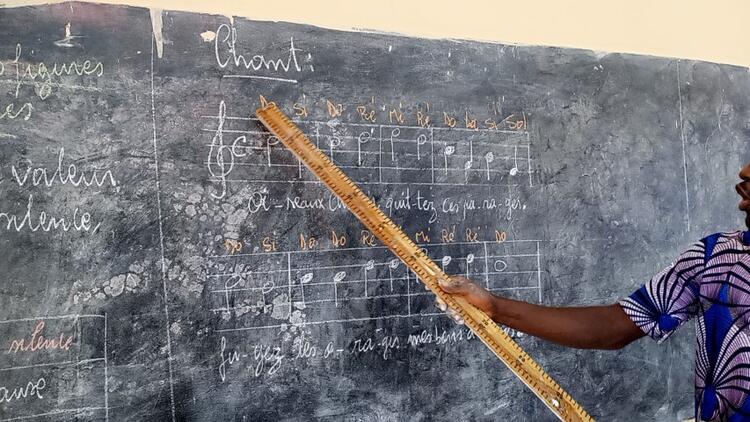 figures
es
valeur
silence,
silence
pause
Chant:
Do Si Do Ré Mi Ré Do La Si Sol
C
Oi-seaux quit-tez ces pa-ra-ges.
Do Si Do Do Ré Mi Ré Ré Do
fu-yez les o-ra-ges mes